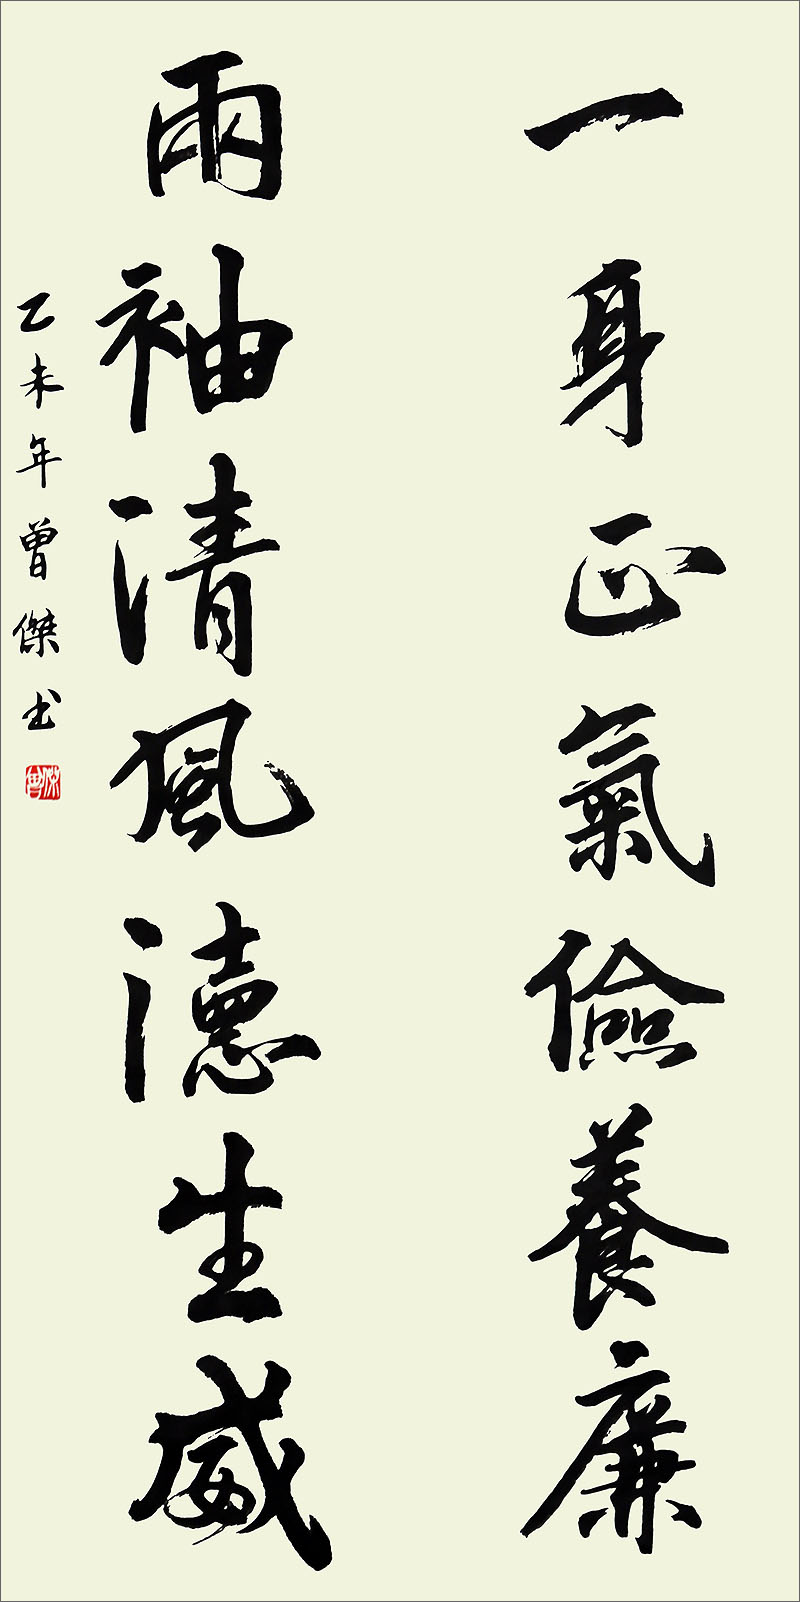 一身正氣儉養廉
兩袖清風德生威
乙未年曾傑书
曾傑